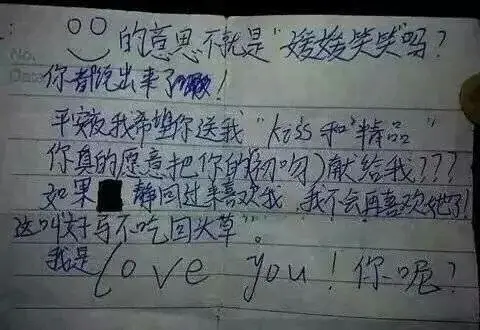 No.
Date
的意思不就是“媛媛笑笑”吗?
你都说出来了!
平安夜我希望你送我“kiss和“精品”
你真的愿意把你的(初吻)献给我???
如果 静回过来喜欢我,我不会再喜欢她了!
这叫好马不吃回头草”。
我是Love you!你呢?